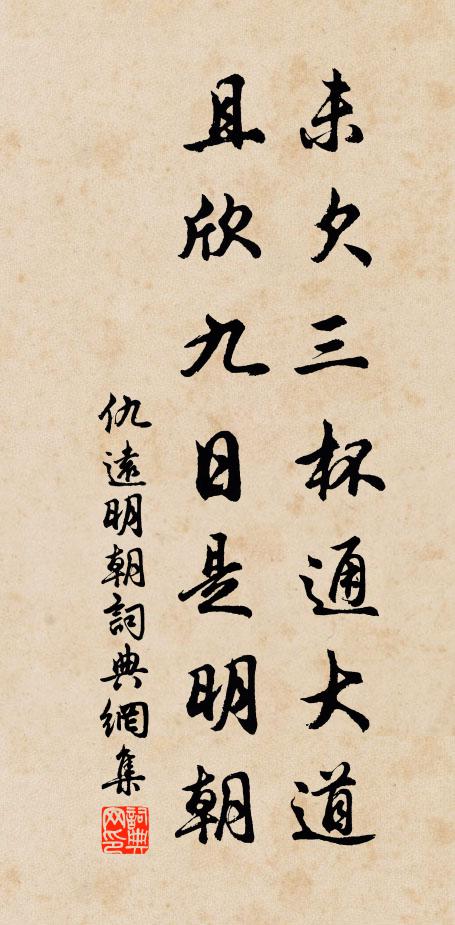 未欠三杯通大道
且欣九日是明朝
仇遠明朝詞典網集
詞典網印